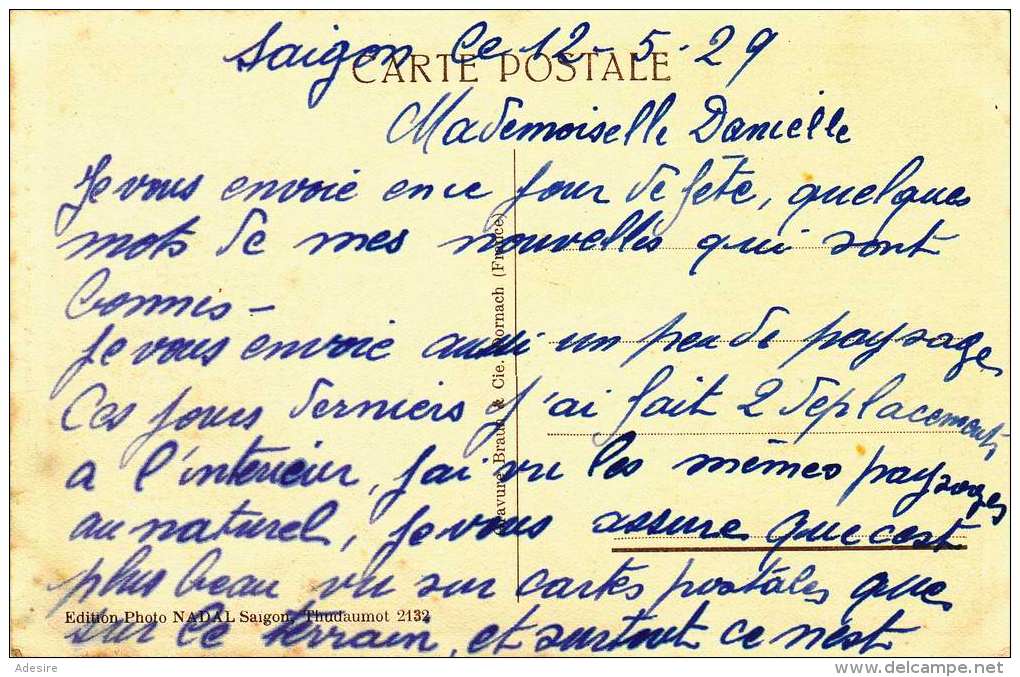 Saigon le 12-5-29
CARTE POSTALE
Mademoiselle Danielle
Je vous envoie en ce jour de fête, quelques
mots de mes nouvelles qui sont
bonnes -
Je vous envoie aussi un peu de paysage
Ces jours derniers j'ai fait 2 déplacements
a l'interieur, j'ai vu les mêmes paysages
au naturel, je vous assure que c'est
plus beau vu sur cartes postales que
sur le terrain, et surtout ce n'est
Gravure Braun & Cie. Dornach (France)
Edition Photo NADAL Saigon, Thudaumot 2132
Adesire
http://www.delcampe.net